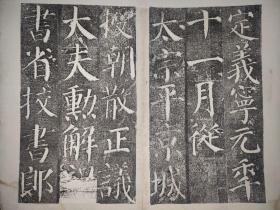 定義寧元年
十一月從
太宗平京城
授朝散正議
大夫勳解
書省校書郎